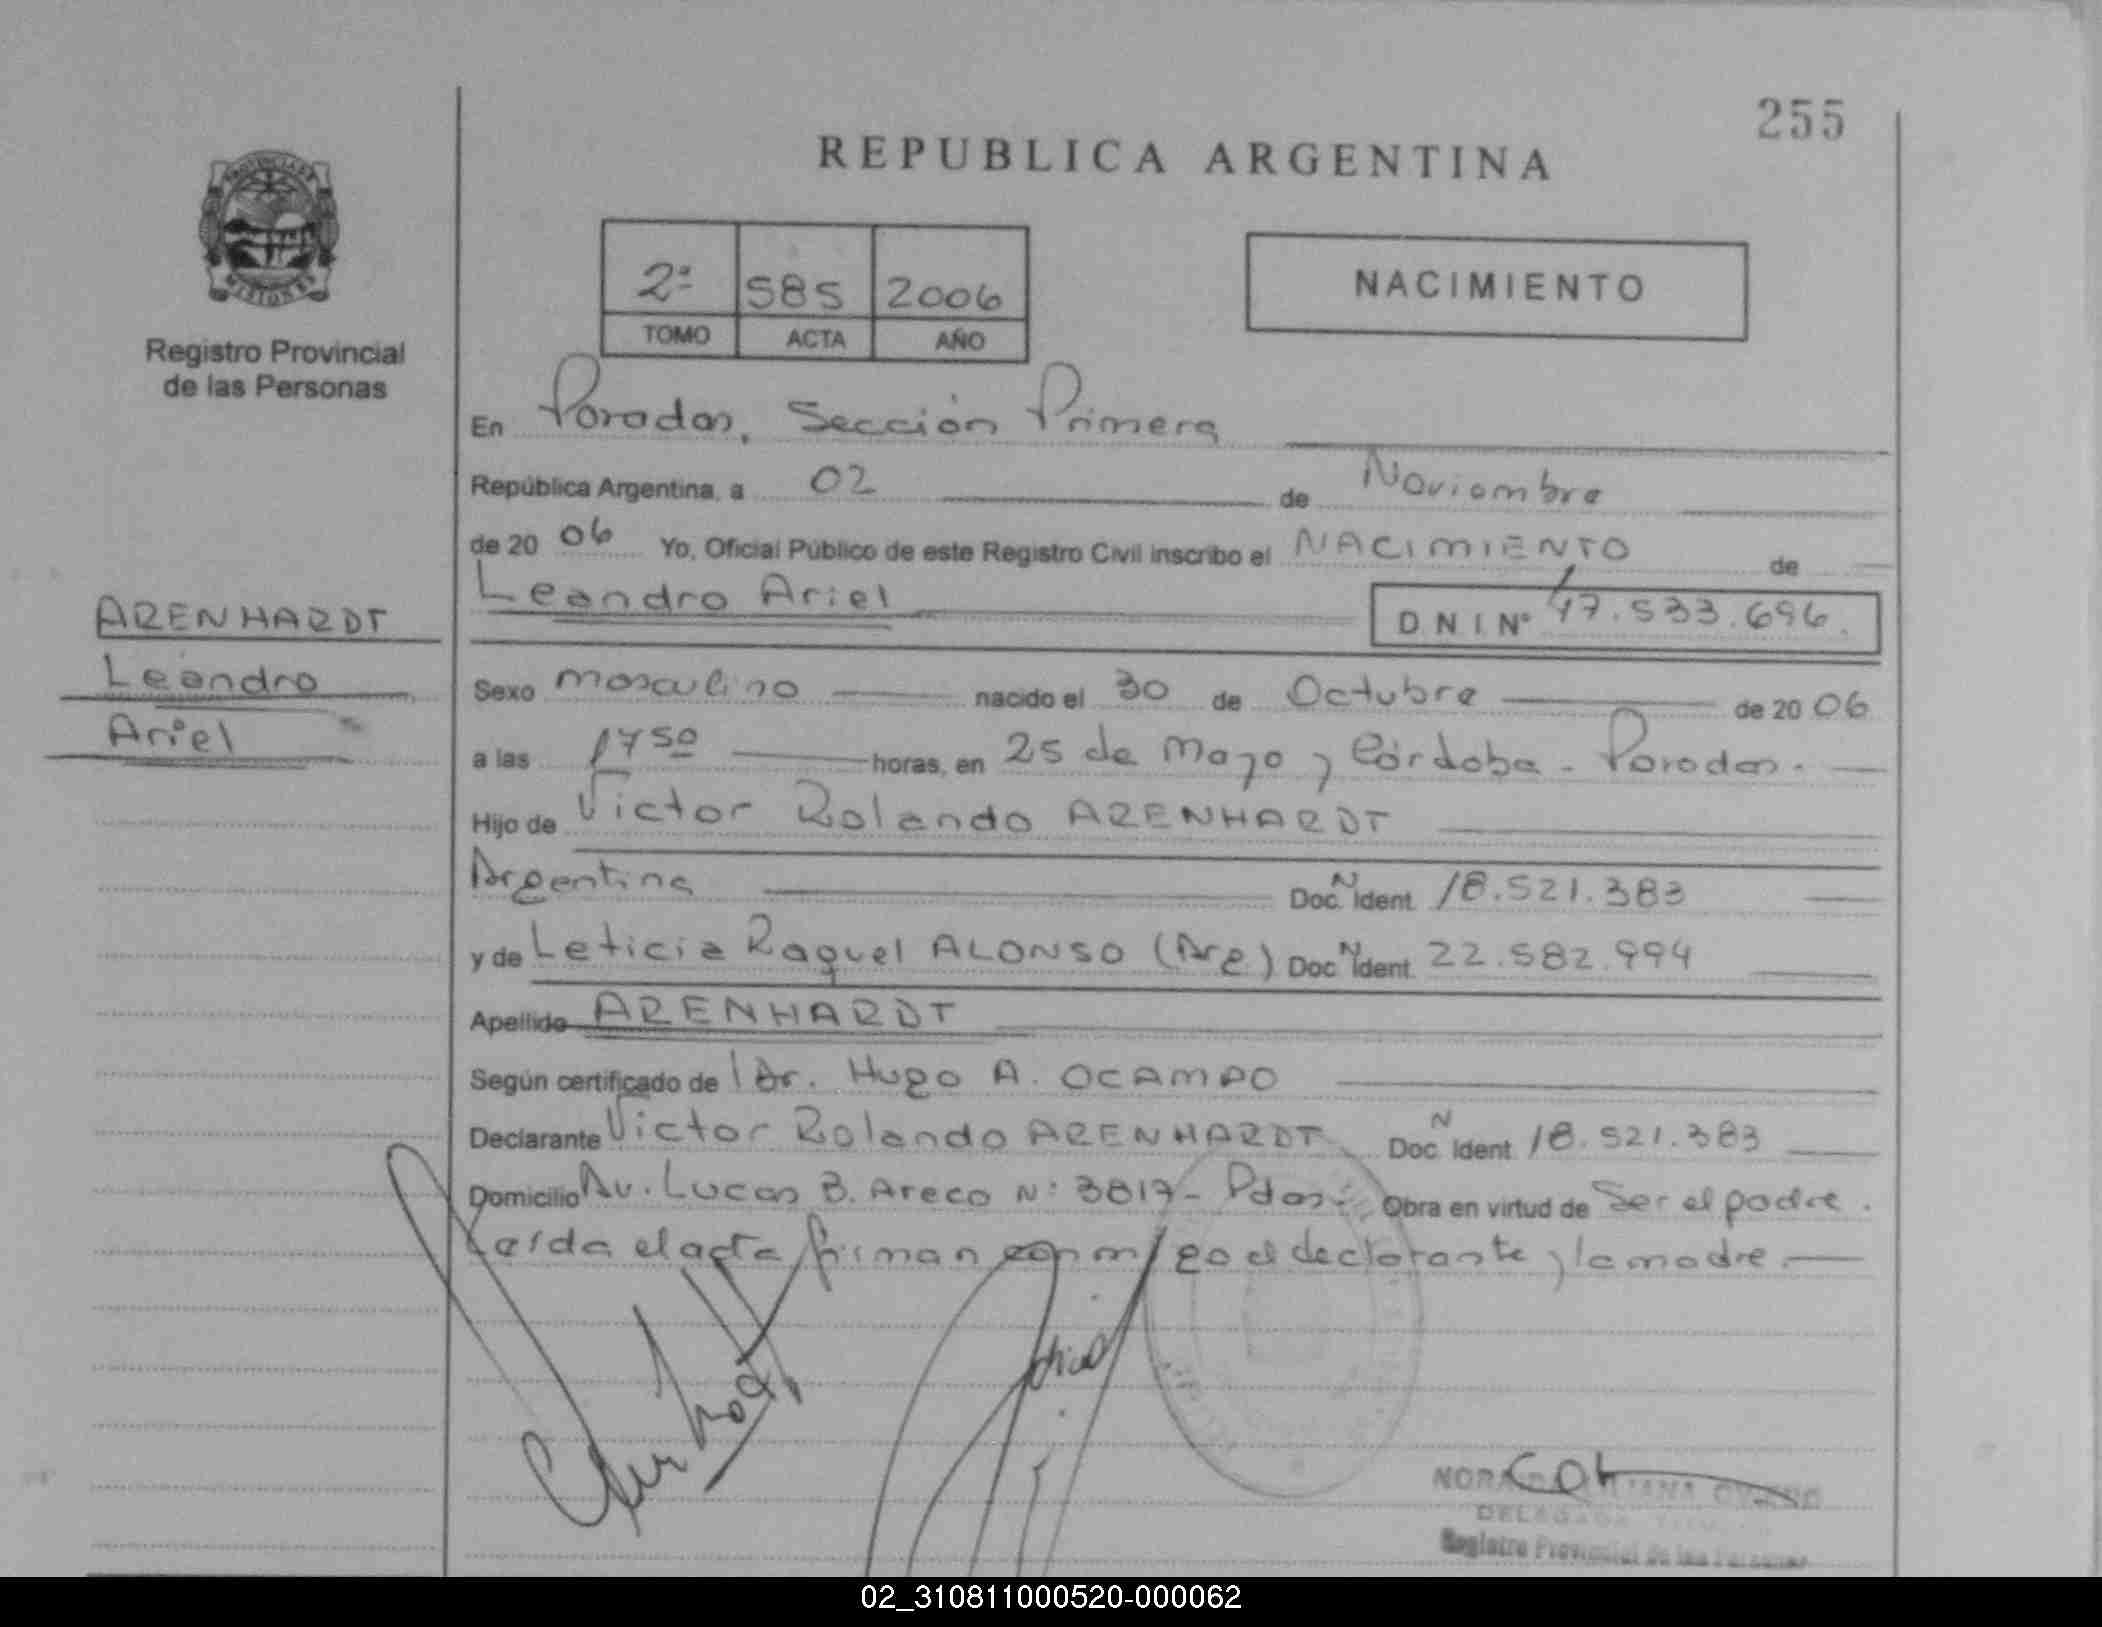 255
REPUBLICA ARGENTINA
PROVINCIA DE
MISIONES
Registro Provincial
de las Personas
2º 585 2006
TOMO ACTA AÑO
NACIMIENTO
En Posadas, Sección Primera
República Argentina, a 02 de Noviembre
de 20 06 Yo, Oficial Público de este Registro Civil inscribo el NACIMIENTO de
Leandro Ariel D.N.I.Nº 47.533.696.
ARENHARDT
Leandro
Ariel
Sexo masculino nacido el 30 de Octubre de 20 06
a las 17 50 horas, en 25 de Mayo y Córdoba - Posadas.
Hijo de Victor Rolando ARENHARDT
Argentina Doc. N Ident. 18.521.383
y de Leticia Raquel ALONSO (Arg.) Doc. N Ident. 22.582.994
Apellido ARENHARDT
Según certificado de l Dr. Hugo A. OCAMPO
Declarante Victor Rolando ARENHARDT Doc. N Ident. 18.521.383
Domicilio Av. Lucas B. Areco Nº 3817 - Pdas. Obra en virtud de Ser el padre.
Leída el acta firman conmigo el declarante y la madre.
NORA
DELEGADA
Registro Provincial de las Personas
02_310811000520-000062